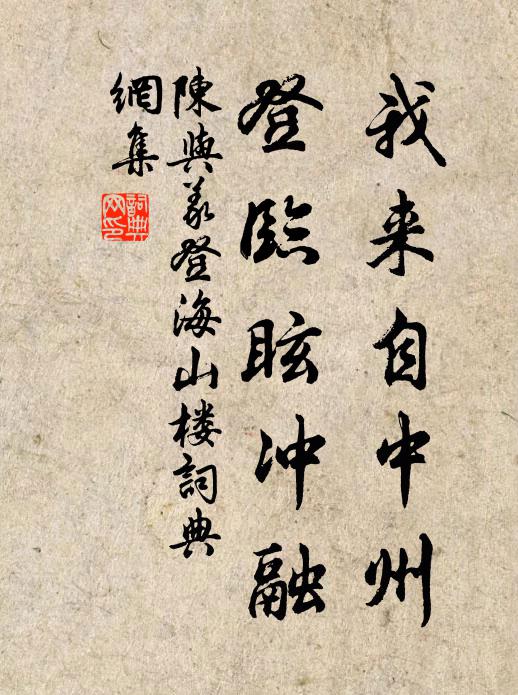 我来自中州
登臨眩冲融
陳與义登海山楼詞典
網集
詞典
网印